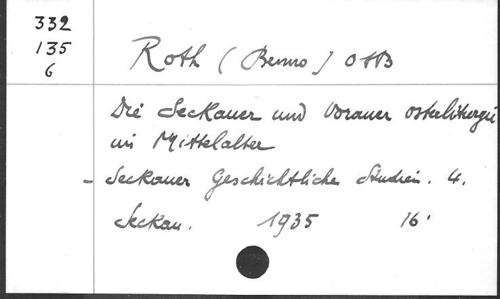 332
135
6
Roth (Benno) OSB
Die Seckauer und Vorauer Osterliturgie
im Mittelalter
- Seckauer Geschichtliche Studien. 4.
Seckau. 1935 16'